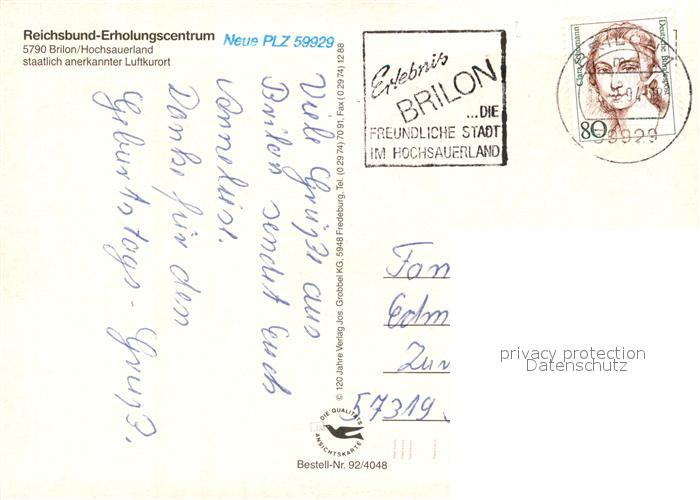 Reichsbund-Erholungscentrum
5790 Brilon/Hochsauerland
staatlich anerkannter Luftkurort
Neue PLZ 59929
Erlebnis
BRILON
...DIE
FREUNDLICHE STADT
IM HOCHSAUERLAND
Clara Schumann
Deutsche Bundespost
80
59929
Viele Grüße aus
Brilon sendet Euch
Annelise.
Danke für den
Geburtstags-Gruß.
© 120 Jahre Verlag Jos. Grobbel KG, 5948 Fredeburg, Tel. (0 29 74) 70 91, Fax (0 29 74) 12 88
DIE QUALITÄTS
ANSICHTSKARTE
Bestell-Nr. 92/4048
Fam
Edm
Zur
57319
privacy protection
Datenschutz